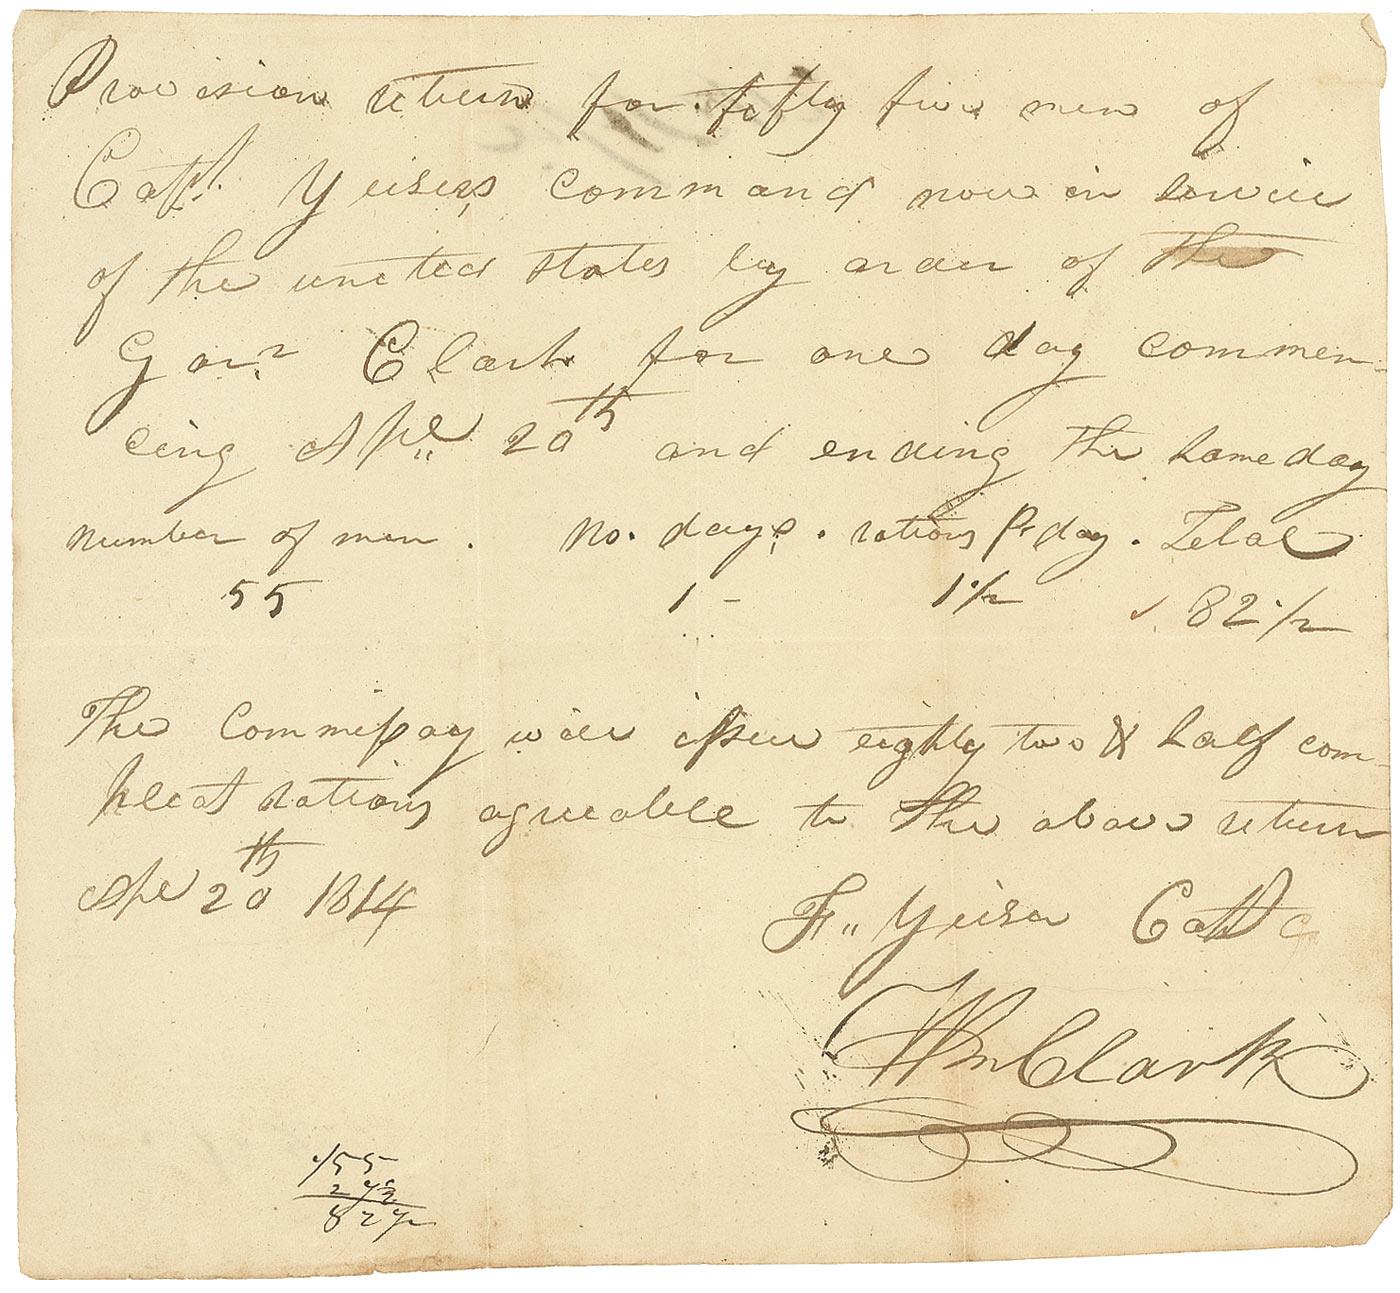 Provision return for fifty five men of
Capt. Yeisers command now in servise
of the united states by order of the
Govr. Clark for one day commen-
cing Apl. 20th and ending the same day
number of men. No. days. rations Pr day. Total
55 1 - 1 1/2 82 1/2
The Commissary will issue eighty two & half com-
pleat rations agreeable to the above return
Apl 20th 1814
F. Yeiser Capt C
Wm Clark
155
27 1/2
82 1/2